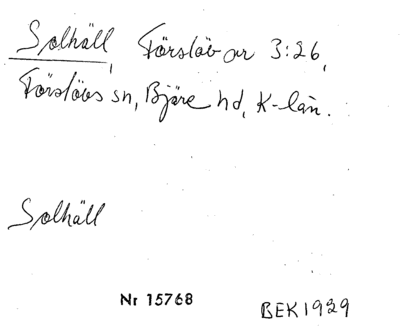 Solhäll, Förslöv nr 3:26,
Förslövs sn, Bjäre hd, K-län.
Solhäll
Nr 15768
BEK 1929